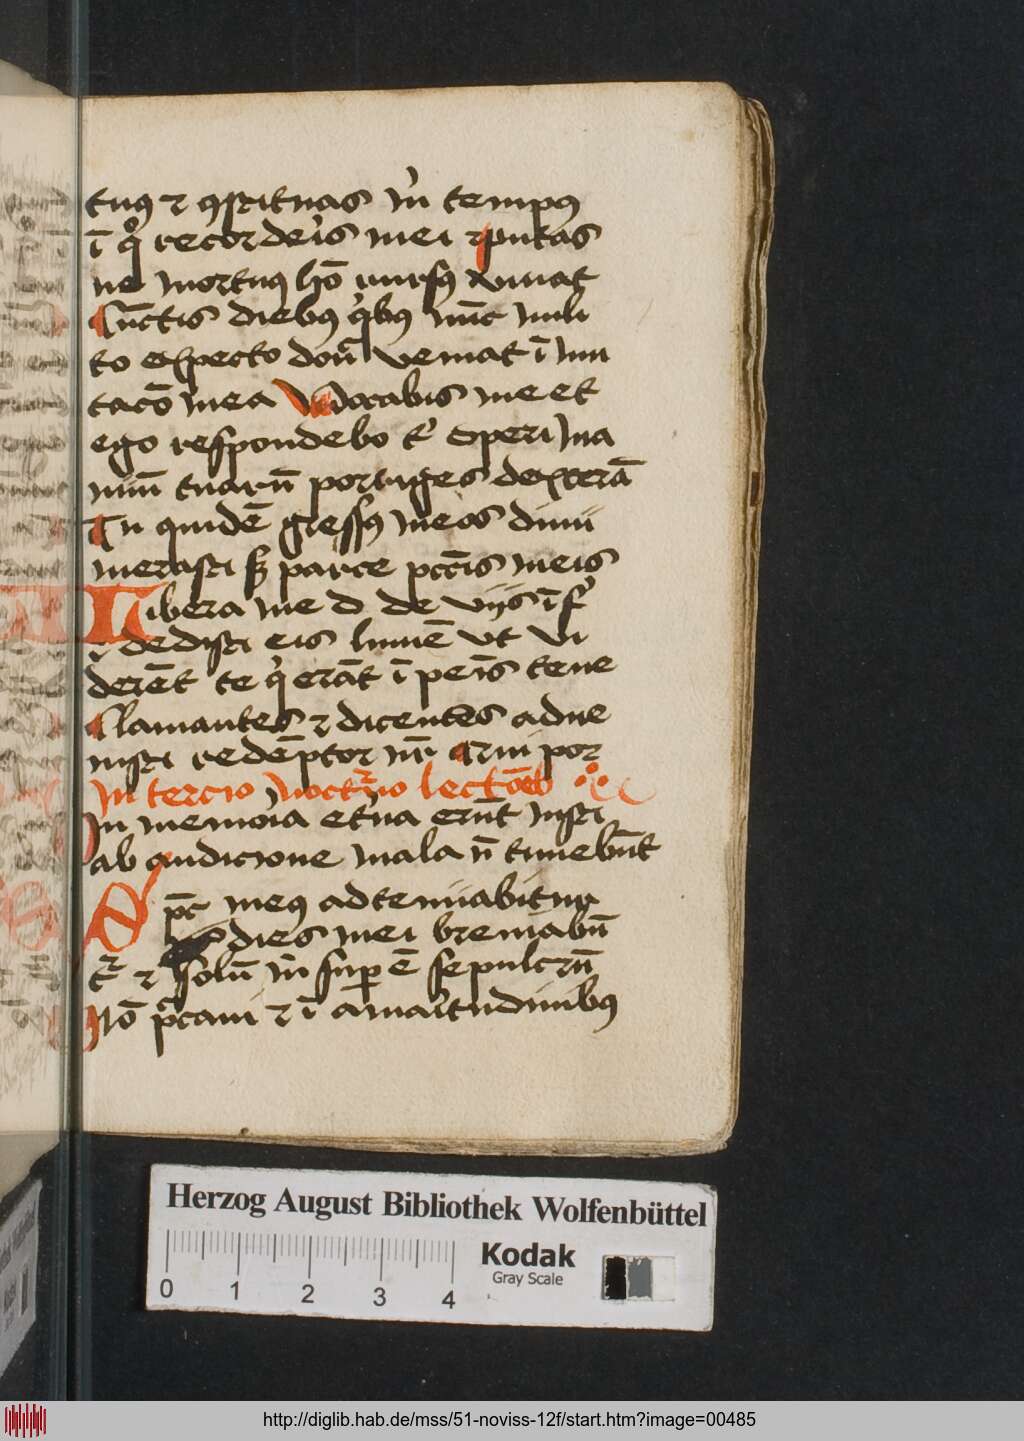 tuus ⁊ ꝯstituas m̍ tempus
ī qͦ recorderis mei ⁊ putas
ne mortuus hō rursus viuat
Cūctis diebus quibus nūc mili
to expecto donͨ veniat īmu
tacō mea Vocabis me et
ego respondebo t̍ operi ma
nuū tuarū porriges dexterā
Tu quidē gressus meos dinu
merasti sꝫ parce pctīs meis
Libera me d de viis īf̍
⁊ dedisti eis lumē vt vi
derēt te qͥ erāt ī penīs tene
Clamantes ⁊ dicentes adue
nisti redēptor nr̄ Qui por
In tercio Nocturno lectōeb
In memoīa et̍na erūt iusti
ab audicione mala n̄ timebūt
Spc̄ meus adtenuabitur
dies mei breuiabūt
t̄r ⁊ solū m̍ supēē sepulcrū
Nō pͨcaui ⁊ ī amaritudinibus
Herzog August Bibliothek Wolfenbüttel
Kodak
Gray Scale
0 1 2 3 4
http://diglib.hab.de/mss/51-noviss-12f/start.htm?image=00485